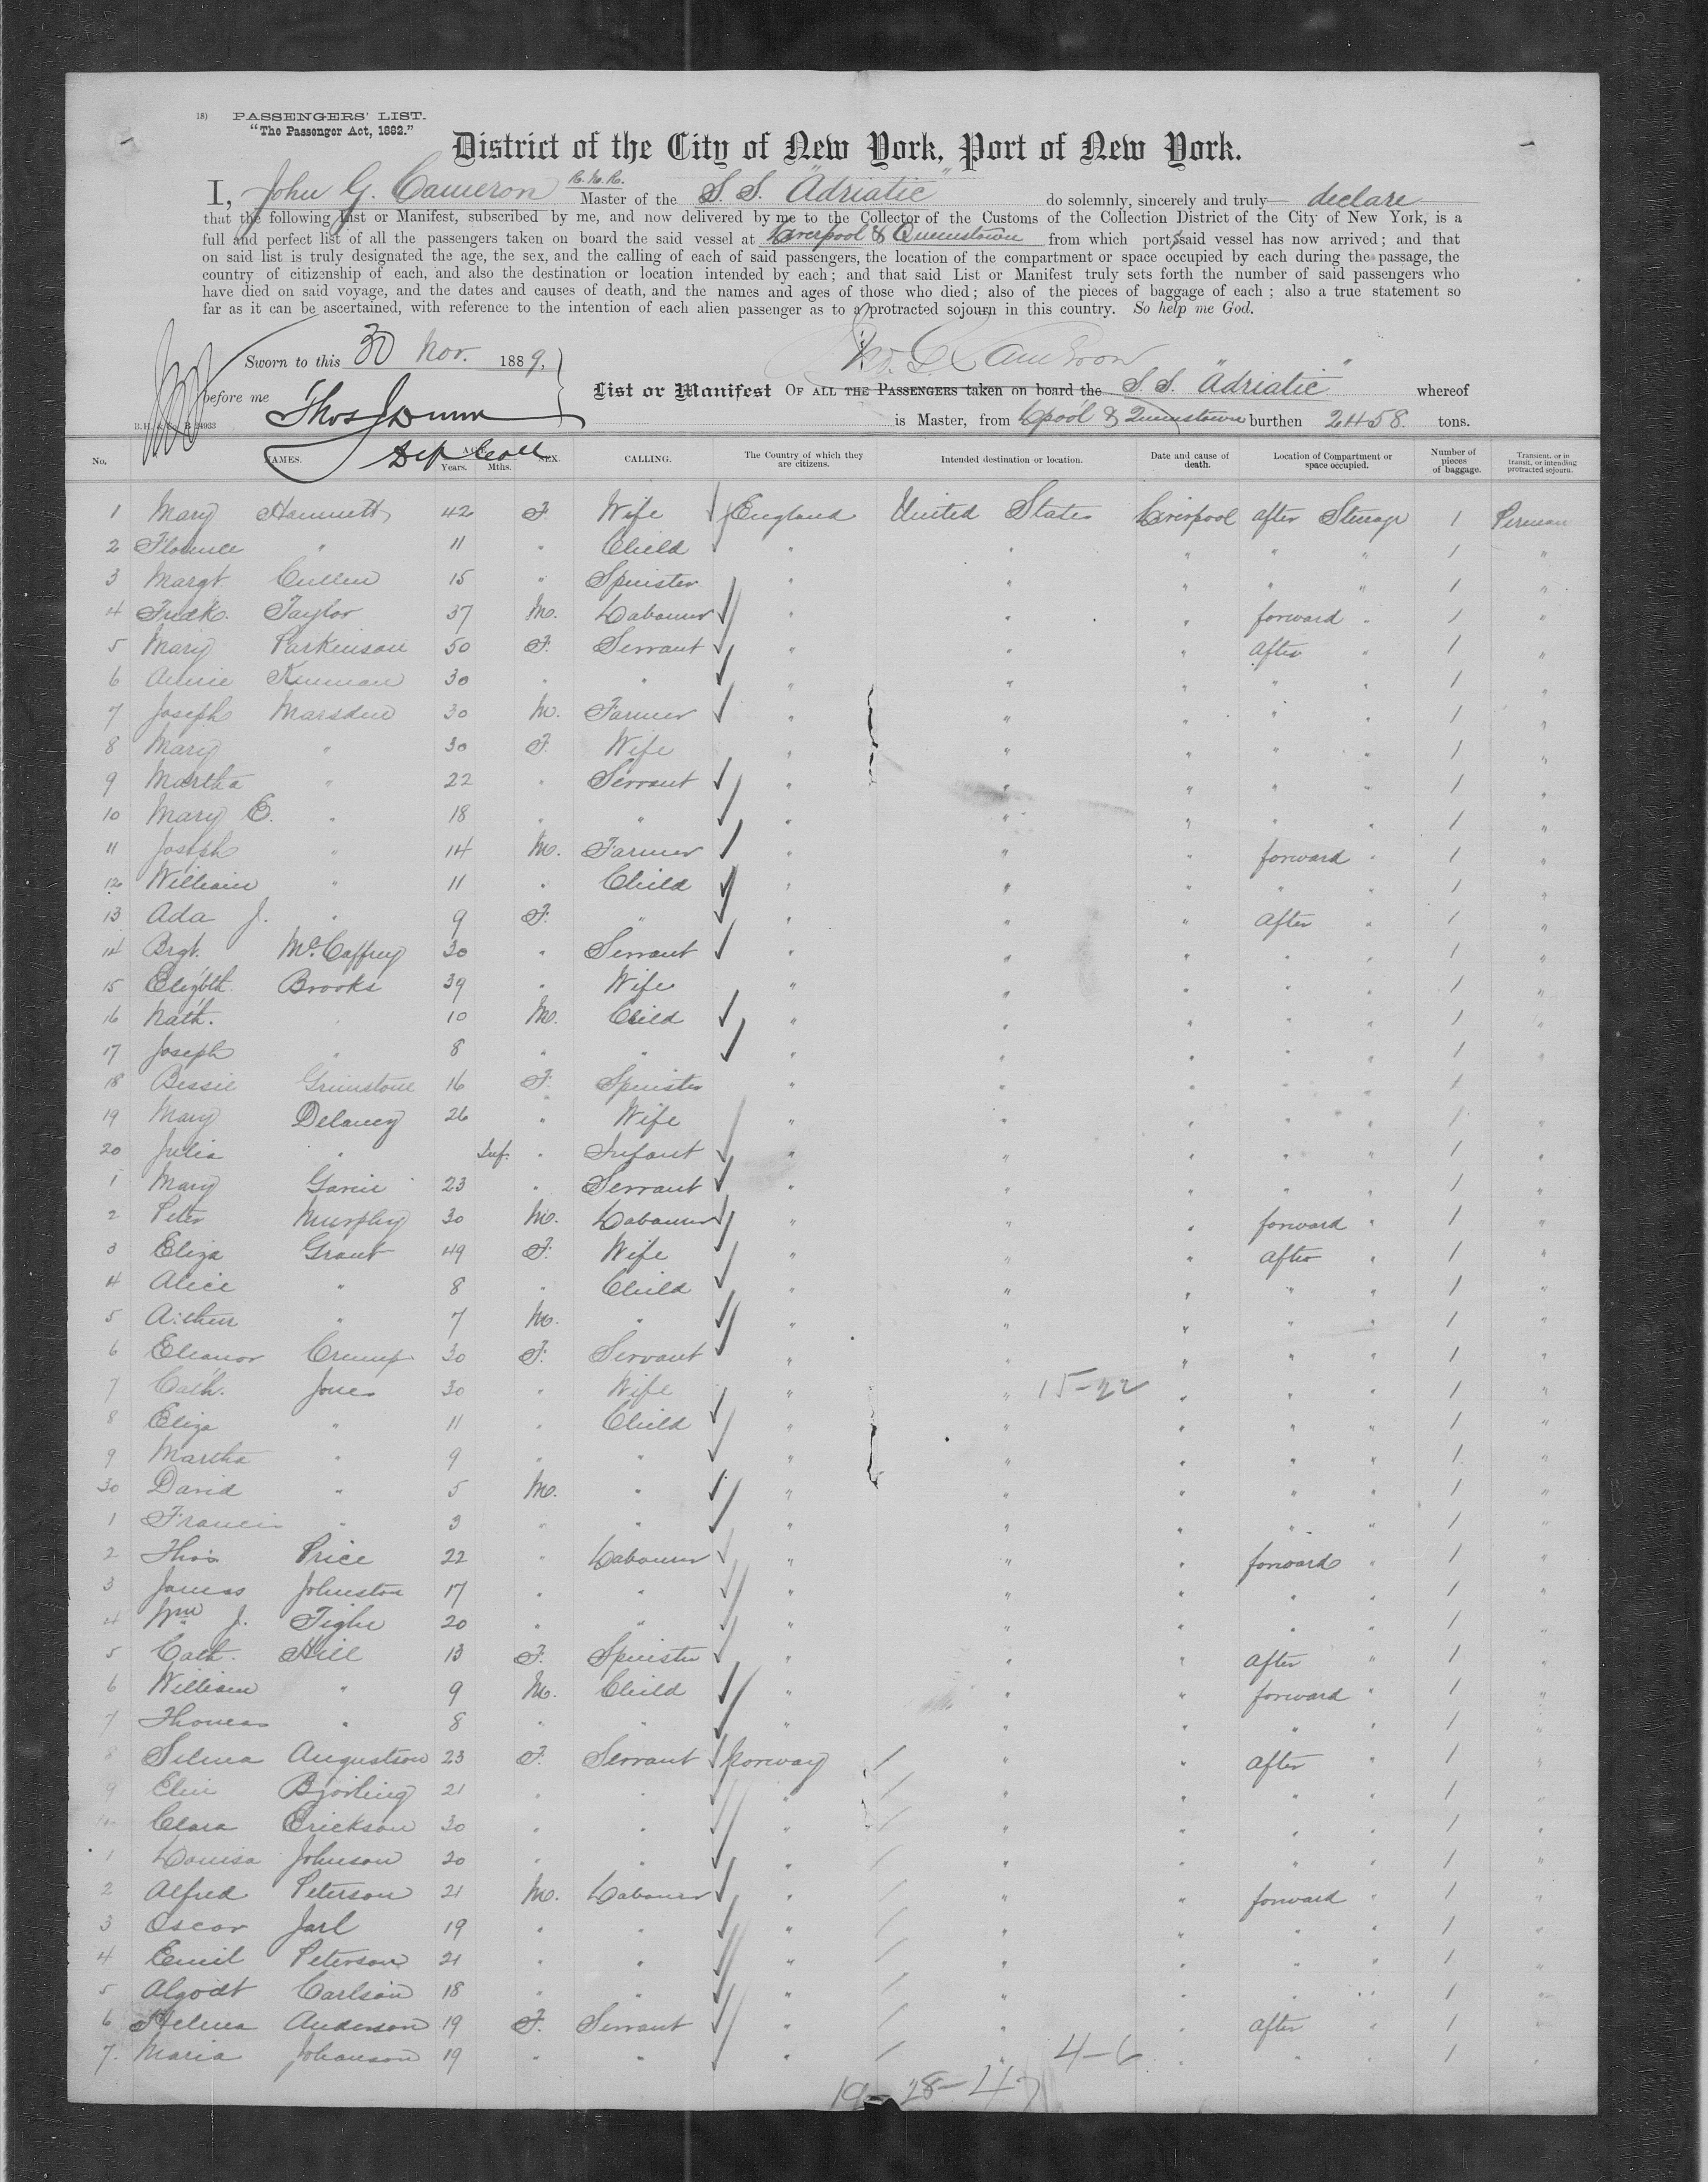 18) PASSENGERS' LIST.
"The Passenger Act, 1882."
District of the City of New York, Port of New York.
I, John G. Cameron R.N.R. Master of the S.S. "Adriatic" do solemnly, sincerely and truly declare
that the following List or Manifest, subscribed by me, and now delivered by me to the Collector of the Customs of the Collection District of the City of New York, is a
full and perfect list of all the passengers taken on board the said vessel at Liverpool & Queenstown from which ports said vessel has now arrived; and that
on said list is truly designated the age, the sex, and the calling of each of said passengers, the location of the compartment or space occupied by each during the passage, the
country of citizenship of each, and also the destination or location intended by each; and that said List or Manifest truly sets forth the number of said passengers who
have died on said voyage, and the dates and causes of death, and the names and ages of those who died; also of the pieces of baggage of each; also a true statement so
far as it can be ascertained, with reference to the intention of each alien passenger as to a protracted sojourn in this country. So help me God.
Sworn to this 30 Nov. 1889, Jno. G. Cameron
before me Thos J Dunn List or Manifest OF ALL THE PASSENGERS taken on board the S.S. "Adriatic" whereof
B.H. & Co. B 24933 is Master, from L'pool & Queenstown burthen 2458. tons.
Dep Coll
No. NAMES. AGE. Years. Mths. SEX. CALLING. The Country of which they are citizens. Intended destination or location. Date and cause of death. Location of Compartment or space occupied. Number of pieces of baggage. Transient, or in transit, or intending protracted sojourn.
1 Mary Hammett 42 F. Wife England United States Liverpool after Steerage 1 Perman
2 Florence " 11 " Child " " " " " 1 "
3 Margt. Cullen 15 " Spinster " " " " " 1 "
4 Fredk. Taylor 37 M. Labourer " " " forward " 1 "
5 Mary Parkinson 50 F. Servant " " " after " 1 "
6 Annie Kinnan 30 " " " " " " " 1 "
7 Joseph Marsden 30 M. Farmer " " " " " 1 "
8 Mary " 30 F. Wife " " " " " 1 "
9 Martha " 22 " Servant " " " " " 1 "
10 Mary E. " 18 " " " " " " " 1 "
11 Joseph " 14 M. Farmer " " " forward " 1 "
12 William " 11 " Child " " " " " 1 "
13 Ada J. " 9 F. " " " " after " 1 "
14 Brgt. McCaffrey 30 " Servant " " " " " 1 "
15 Elizbth. Brooks 39 " Wife " " " " " 1 "
16 Nath. " 10 M. Child " " " " " 1 "
17 Joseph " 8 " " " " " " " 1 "
18 Bessie Grimstone 16 F. Spinster " " " " " 1 "
19 Mary Delaney 26 " Wife " " " " " 1 "
20 Julia " Inf. " Infant " " " " " 1 "
1 Mary Garvie 23 " Servant " " " " " 1 "
2 Peter Murphy 30 M. Labourer " " " forward " 1 "
3 Eliza Grant 49 F. Wife " " " after " 1 "
4 Alice " 8 " Child " " " " " 1 "
5 Arthur " 7 M. " " " " " " 1 "
6 Eleanor Crump 30 F. Servant " " " " " 1 "
7 Cath. Jones 30 " Wife " " 15-22 " " " 1 "
8 Eliza " 11 " Child " " " " " 1 "
9 Martha " 9 " " " " " " " 1 "
30 David " 5 M. " " " " " " 1 "
1 Francis " 3 " " " " " " " 1 "
2 Thos Price 22 " Labourer " " " forward " 1 "
3 James Johnston 17 " " " " " " " 1 "
4 Wm J. Tighe 20 " " " " " " " 1 "
5 Cath. Hill 13 F. Spinster " " " after " 1 "
6 William " 9 M. Child " " " forward " 1 "
7 Thomas " 8 " " " " " " " 1 "
8 Selma Augustson 23 F. Servant Norway " " after " 1 "
9 Elin Bjorling 21 " " " " " " " 1 "
40 Clara Erickson 30 " " " " " " " 1 "
1 Louisa Johnson 20 " " " " " " " 1 "
2 Alfred Peterson 21 M. Labourer " " " forward " 1 "
3 Oscar Jarl 19 " " " " " " " 1 "
4 Emil Peterson 21 " " " " " " " 1 "
5 Algodt Carlson 18 " " " " " " " 1 "
6 Helma Anderson 19 F. Servant " " " after " 1 "
7. Maria Johanson 19 " " " " 4-6 " " " 1 "
19-28-47